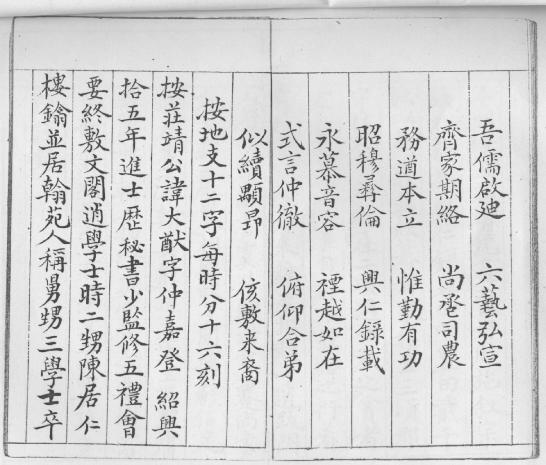 吾儒啟廸 六藝弘宣
齊家期絡 尚司農
務道本立 惟勤有功
昭穆彞倫 興仁錄載
永慕音容 禋越如在
式言仲徹 俯仰合弟
似續顯昂 侅敷来裔
按地支十二字每時分十六刻
按莊靖公諱大猷字仲嘉登 紹興
拾五年進士歷秘書少監修五禮會
要終敷文閣逍學士時二甥陳居仁
樓鑰並居翰苑人稱舅甥三學士卒